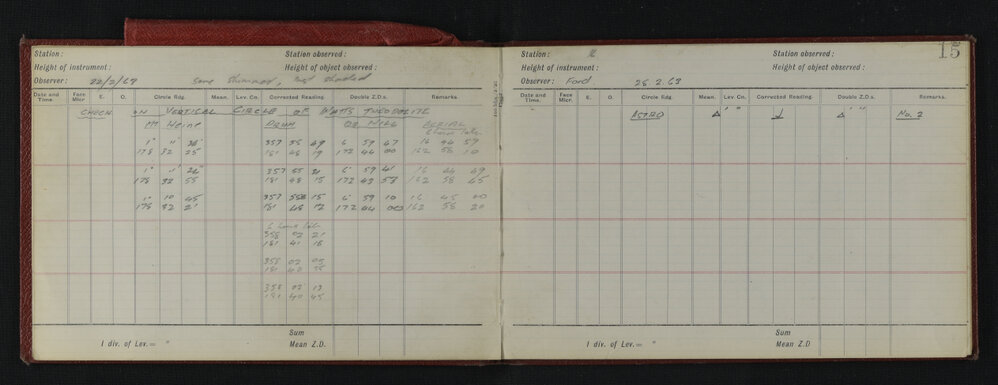 Station: Station observed:
Height of instrument: Height of object observed:
Observer: 22/2/69 Some Shimmer,
Date and Time. Face Micr. E. O. Circle Rdg. Mean. Lev. Cn. Corrected Reading. Double Z.D.s. Remarks.
CHECK ON VERTICAL CIRCLE OF WATTS THEODOLITE
Mt Heine DRUM OB HILL AERIAL
357 55 49 6 59 47 16 44 59
178 32 25 181 48 19 172 44 00 162 58 10
357 55 21 16 44 49
178 32 55 181 48 15 172 43 58 162 58 45
10 45 357 15 6 59 10 16 45 00
178 32 181 48 12 172 44 00 162 58 20
358 02 21
181 41 15
358 02 05
181 40
358 02 13
181 40 45
Sum
1 div. of Lev.= " Mean Z.D
15
Station: Station observed:
Height of instrument: Height of object observed:
Observer: Ford 25.2.63
Date and Time. Face Micr. E. O. Circle Rdg. Mean. Lev. Cn. Corrected Reading. Double Z.D.s. Remarks.
ASTRO No. 2
Sum
1 div. of Lev.= " Mean Z.D.